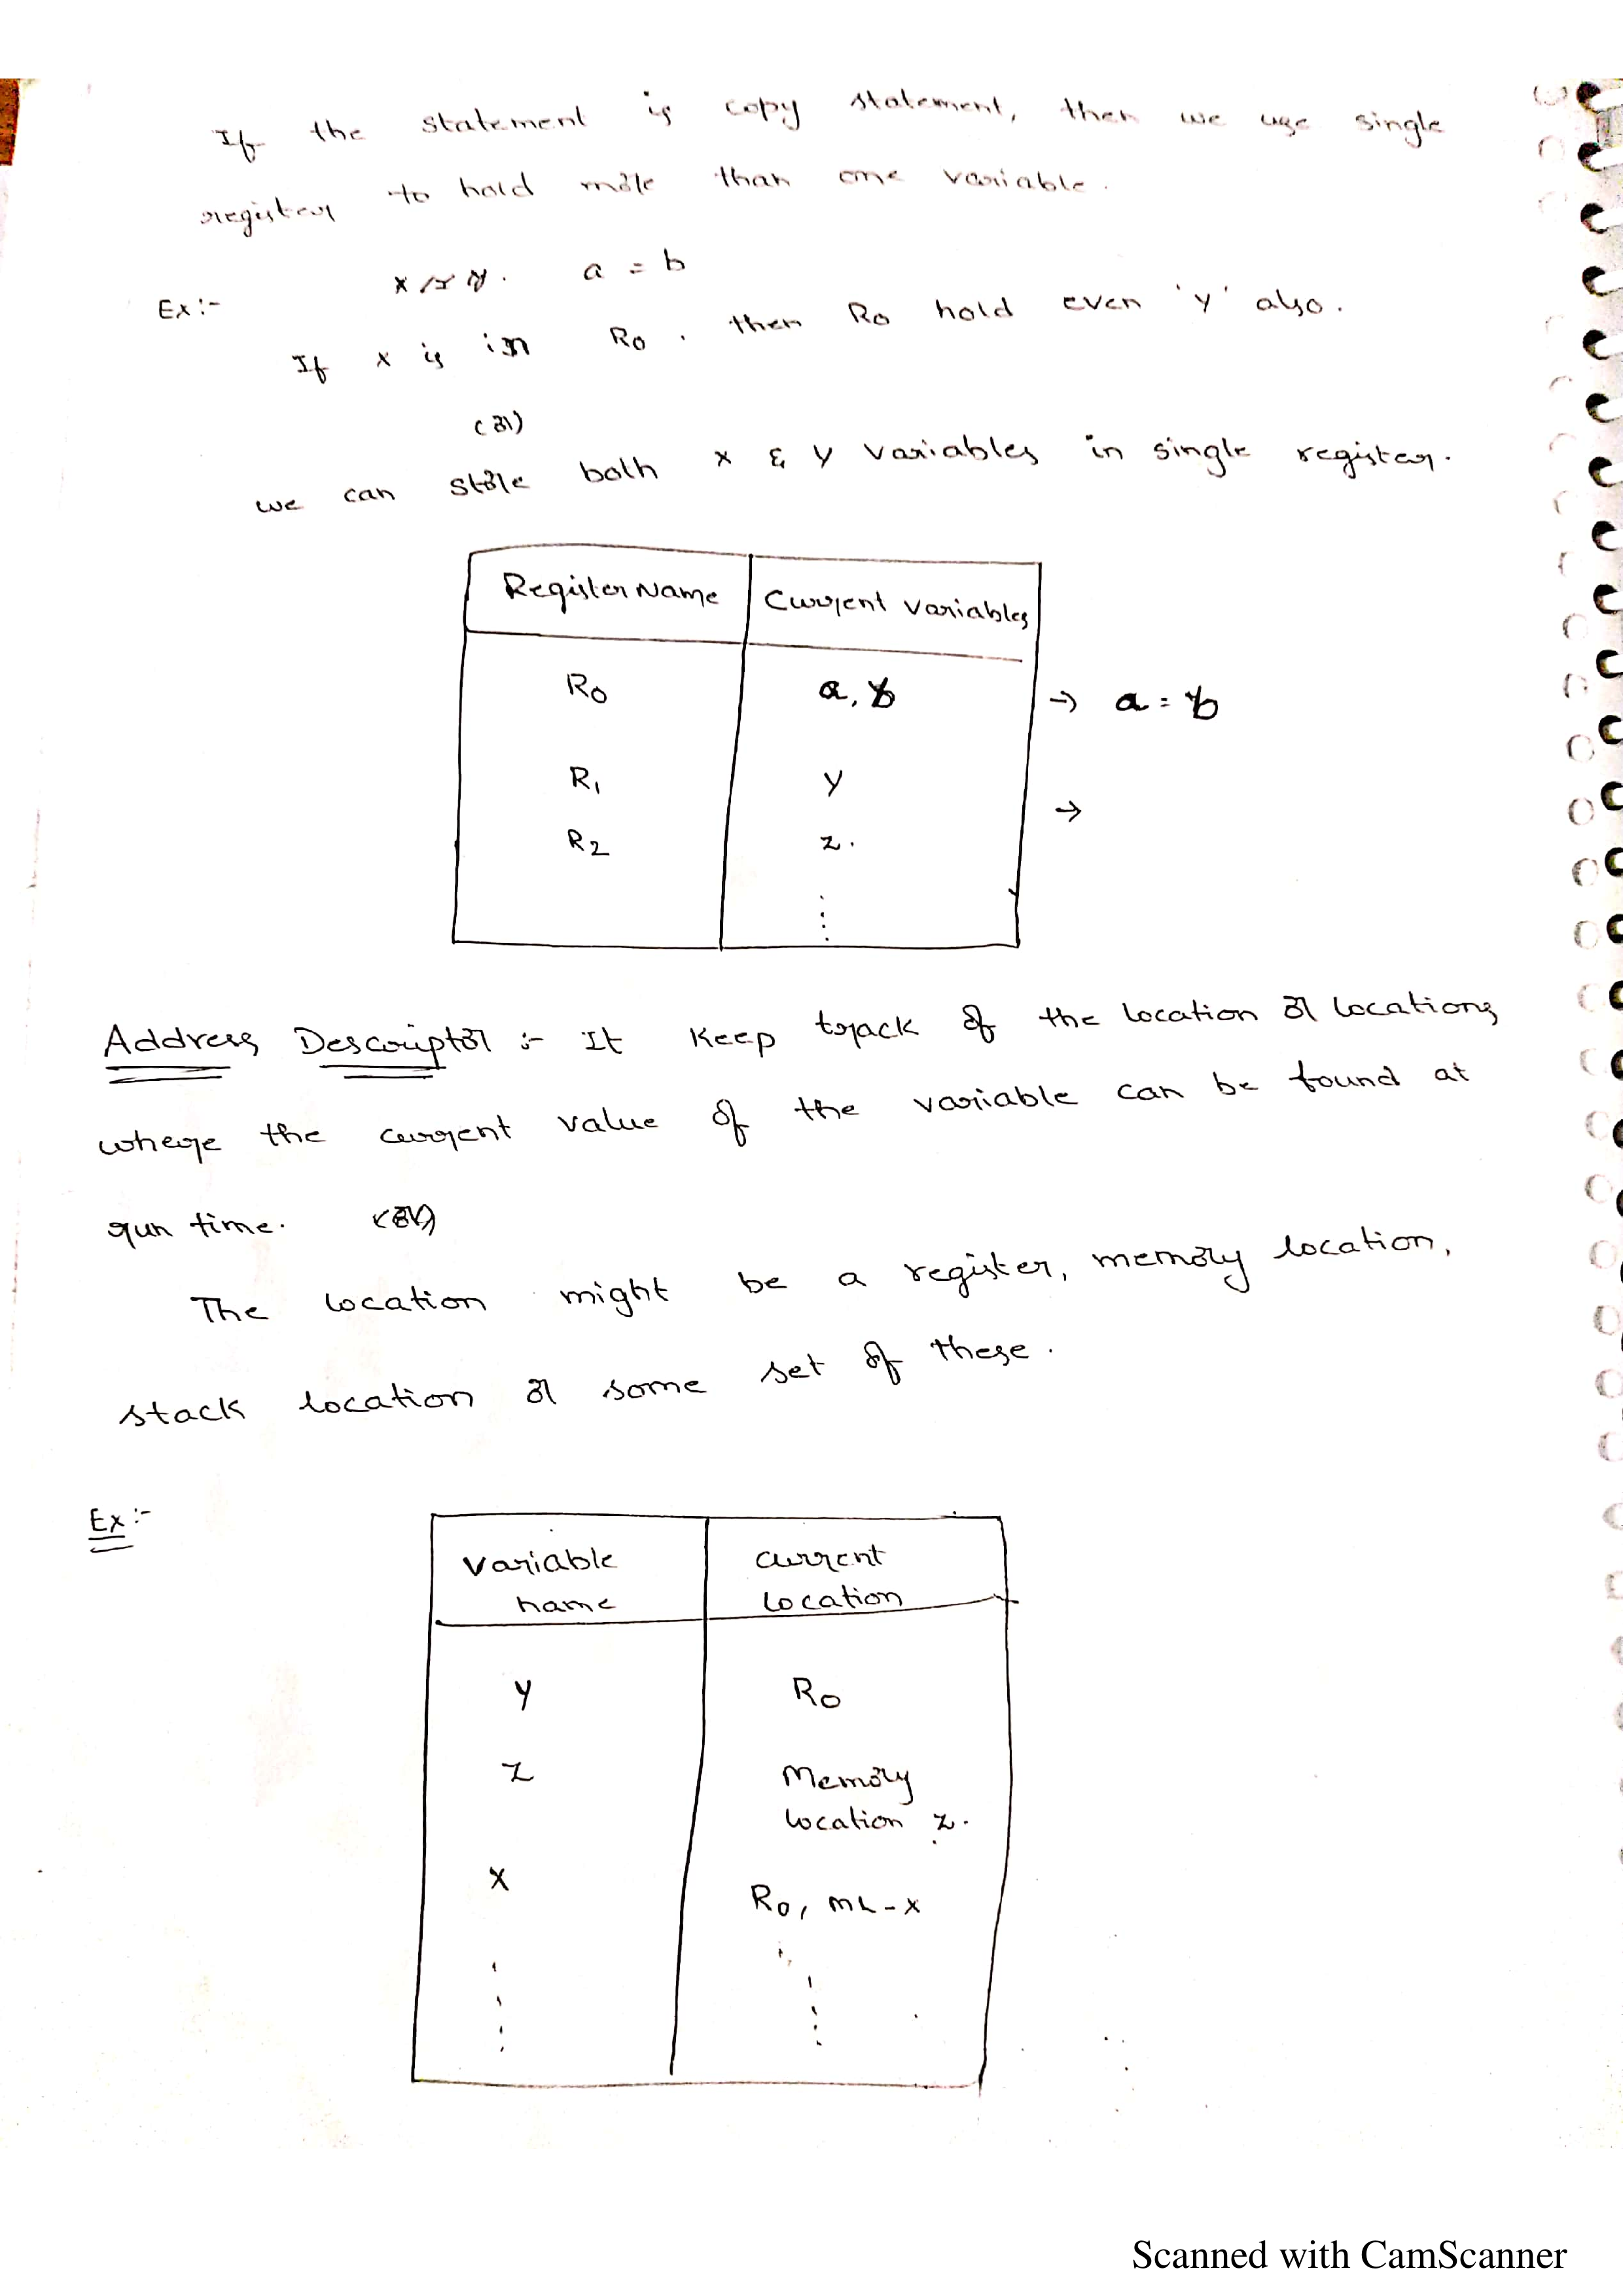 If the statement is copy statement, then we use single
register to hold more than one variable.
Ex:- a = b
If x is in R0, then R0 hold even 'y' also.
(or)
we can store both x & y variables in single register.
Register Name | Current variables
R0 a, b → a = b
R1 y →
R2 z.
Address Descriptor :- It keep track of the location or locations
where the current value of the variable can be found at
run time. (or)
The location might be a register, memory location,
stack location or some set of these.
Ex:-
variable name | current location
y R0
z Memory location z.
x R0, ML-x
Scanned with CamScanner